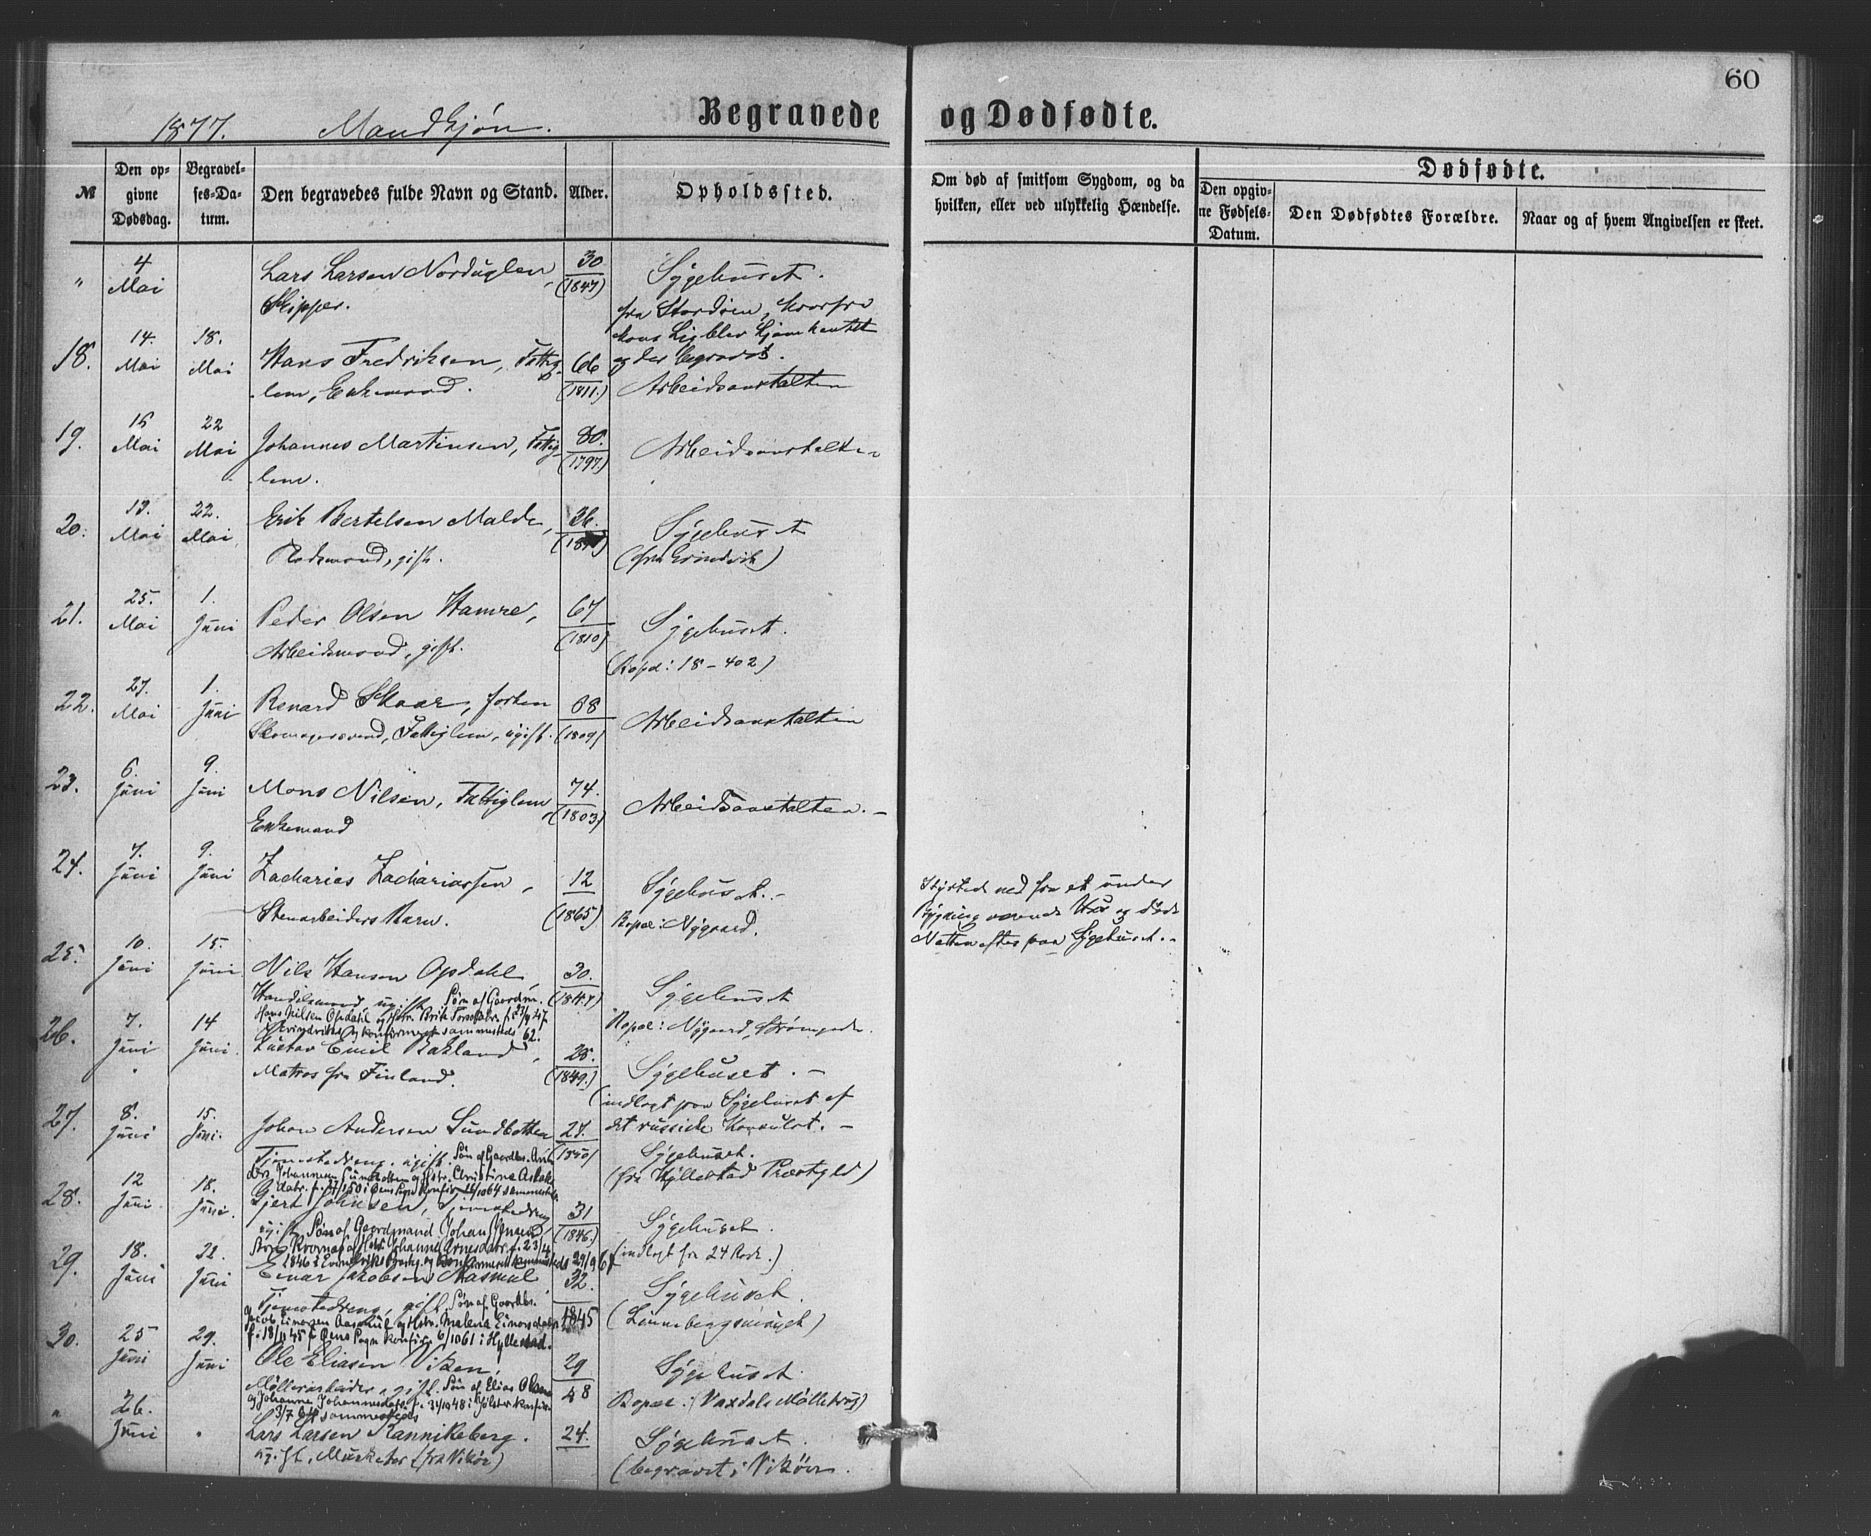 60
1877. Mandkjøn. Begravede og Dødfødte.
№
Den opgivne Dødsdag.
Begravelses-Datum.
Den begravedes fulde Navn og Stand.
Alder.
Opholdssted.
Om død af smitsom Sygdom, og da hvilken, eller ved ulykkelig Hændelse.
Dødfødte.
Den opgivne Fødsels-Datum.
Den Dødfødtes Forældre.
Naar og af hvem Angivelsen er skeet.
" 4 Mai Lars Larsen Norduglen, 30 Sygehuset.
Skipper. (1847) fra Stordøen, hvorfra
hans Lig blev hjemhentet
og der begravet.
18. 14. Mai 18. Mai Hans Fredriksen, Fattig- 66
lem, Enkemand. (1811.) Arbeidsanstalten
19. 16 Mai 22 Mai Johannes Martinsen, Fattig- 80. Arbeidsanstalten
lem. (1797)
20. 19. Mai 22. Mai Erik Bertelsen Malde, 26. Sygehuset
gift. (fra Evindvik)
21. 25. Mai 1. Juni Peder Olsen Hamre, 67 Sygehuset.
Arbeidsmand, gift. (1810) (Bopæl: 18-402)
22. 27. Mai 1. Juni Renard Skaar, forhen 68 Arbeidsanstalten
Skomagersvend, Fattiglem, ugift. (1809)
23. 6. Juni 9. Juni Mons Nilsen, Fattiglem, 74. Arbeidsanstalten.-
Enkemand (1803)
24. 7. Juni 9. Juni Zacharias Zachariassen, 12 Sygehuset.- Styrted ned fra et under
Stenarbeiders Barn. (1865) Bopæl: Nygaard. Bygning værende Hus og døde
Natten efter paa Sygehuset.-
25. 10. Juni 15. Juni Nils Hansen Opdahl, 30. Sygehuset
Handelsmand, ugift. Søn af Gaardm. (1847) Bopæl: Nygaard, Strømgade.
Hans Nilsen Opdahl og Hstr. Brite f. 23/9 47
i Evindvik og konfirmeret sammesteds 62.
26. 7. Juni 14 Juni Gustav Emil Bakland, 28. Sygehuset.-
Matros fra Finland. (1849.) (indlagt paa Sygehuset af
det russiske Konsulat.-
27. 8. Juni 15. Juni. Johan Andersen Sundbotten 27. Sygehuset.
Tjenestedreng, ugift. Søn af Gaardbr. (1850) (fra Hyllestad Præstgld)
Johannesen Sundbotten og Hstr. Christine
28. 12 Juni 18. Juni. Gjert Johnsen, Tjenestedreng 31 Sygehuset.
ugift. Søn af Gaardmand Johan Jensen (1846.) (indlagt fra 24 Rode.)
og Hstr. Johanne Arnesdatr f. 23/4
1846 i Evindviks og konfirmeret sammesteds 29/9 61
29. 18. Juni 22. Juni Einar Jakobsen Aasmul 32. Sygehuset.
Tjenestedreng, gift. Søn af Gaardbr. 1845
Jacob Einarsen Aasmul og Hstr. Malena Einarsdatr
i Hyllestad.
30. 25 Juni 29. Juni Ole Eliasen Viken, 29 Sygehuset.
Møllearbeider, gift. Søn af Elias Olsen 48 Bopæl: (Vaxdals Møllebrug)
og Johanne Johannesdatr f. 31/10 48 i Jølster
sammesteds
" 26. Juni " Lars Larsen Kannikeberg. 24. Sygehuset.
ugift, Musketer (fra Vikør) (begravet i Vikør.